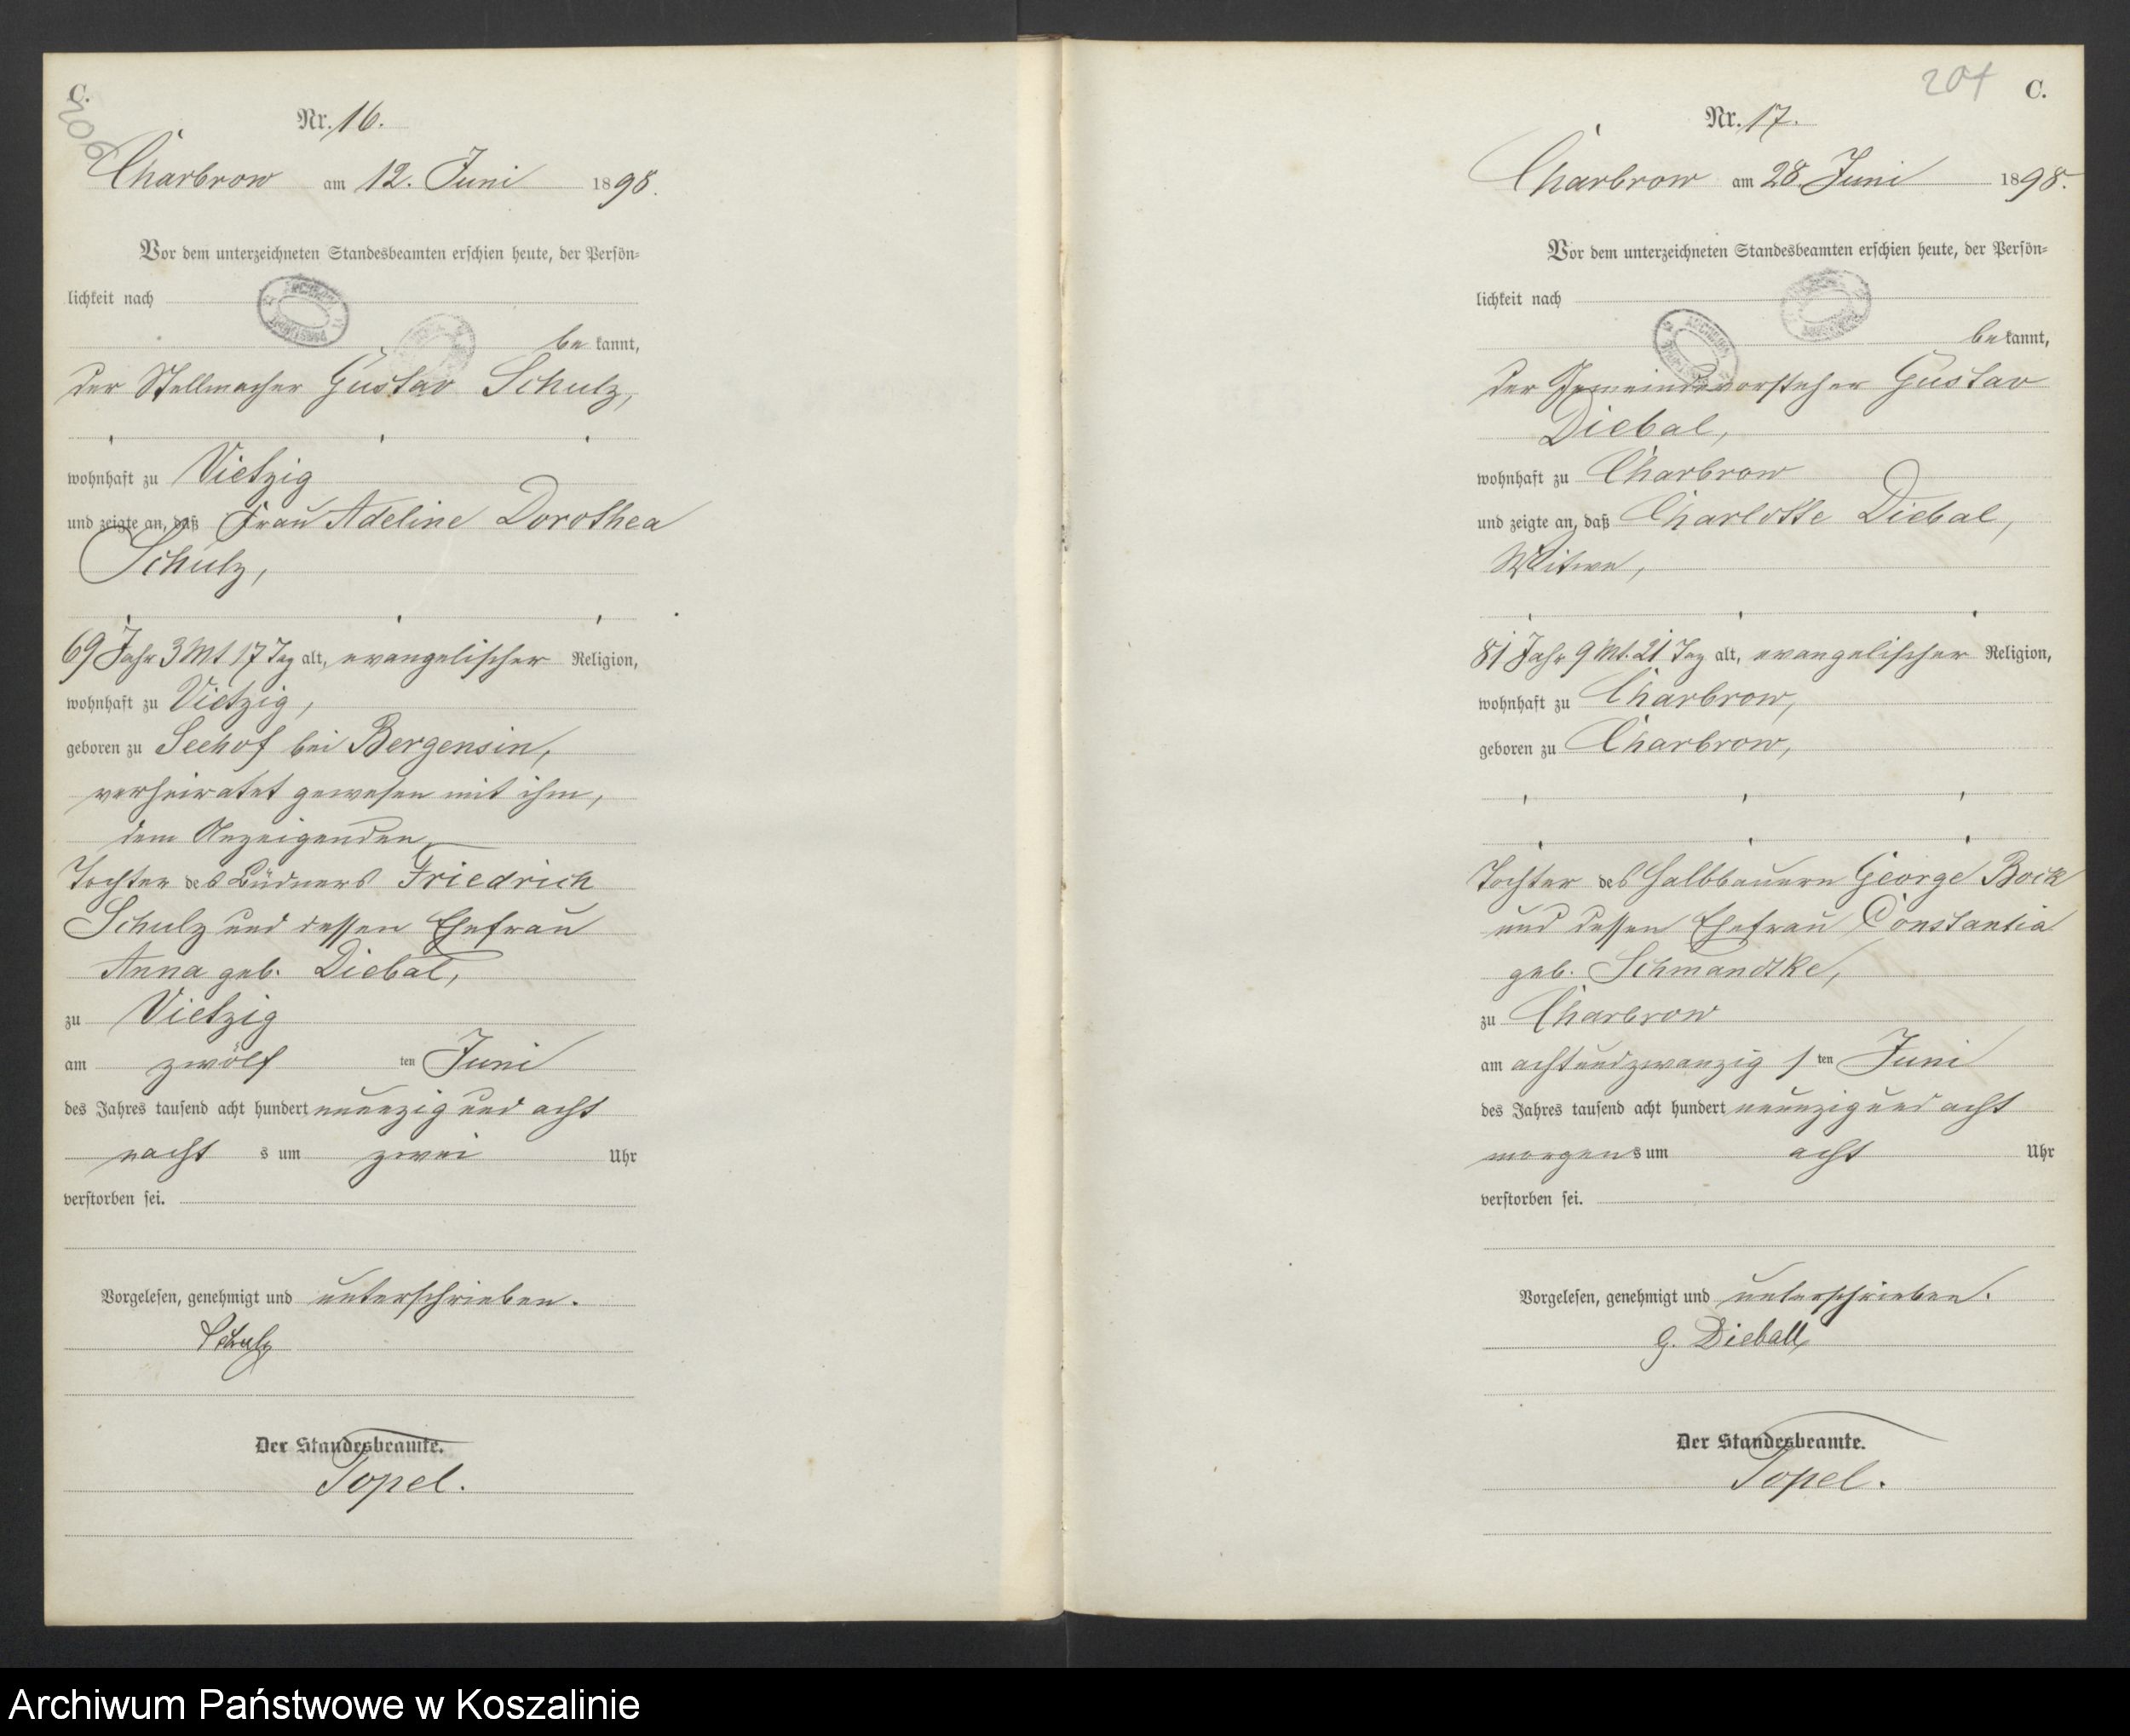 C.
206
Nr. 16.
Charbrow am 12. Juni 1898.
Vor dem unterzeichneten Standesbeamten erschien heute, der Persön-
lichkeit nach
be kannt,
der Stellmacher Gustav Schulz,
wohnhaft zu Vietzig
und zeigte an, daß Frau Adeline Dorothea
Schulz,
69 Jahr 3 Mt 17 Tag alt, evangelischer Religion,
wohnhaft zu Vietzig,
geboren zu Seehof bei Bergensin,
verheiratet gewesen mit ihm,
dem Anzeigenden,
Tochter des Büdners Friedrich
Schulz und dessen Ehefrau
Anna geb. Diebal,
zu Vietzig
am zwölf ten Juni
des Jahres tausend acht hundert neunzig und acht
nacht s um zwei Uhr
verstorben sei.
Vorgelesen, genehmigt und unterschrieben.
Schulz
Der Standesbeamte.
Topel.
207 C.
Nr. 17.
Charbrow am 28. Juni 1898.
Vor dem unterzeichneten Standesbeamten erschien heute, der Persön-
lichkeit nach
be kannt,
der Gemeindevorsteher Gustav
Diebal,
wohnhaft zu Charbrow
und zeigte an, daß Charlotte Diebal,
Witwe,
81 Jahr 9 Mt. 21 Tag alt, evangelischer Religion,
wohnhaft zu Charbrow,
geboren zu Charbrow,
Tochter des Halbbauern George Bock
und dessen Ehefrau Constantia
geb. Schmandtke,
zu Charbrow
am achtundzwanzig sten Juni
des Jahres tausend acht hundert neunzig und acht
morgens um acht Uhr
verstorben sei.
Vorgelesen, genehmigt und unterschrieben.
G. Dieball
Der Standesbeamte.
Topel.
Archiwum Państwowe w Koszalinie